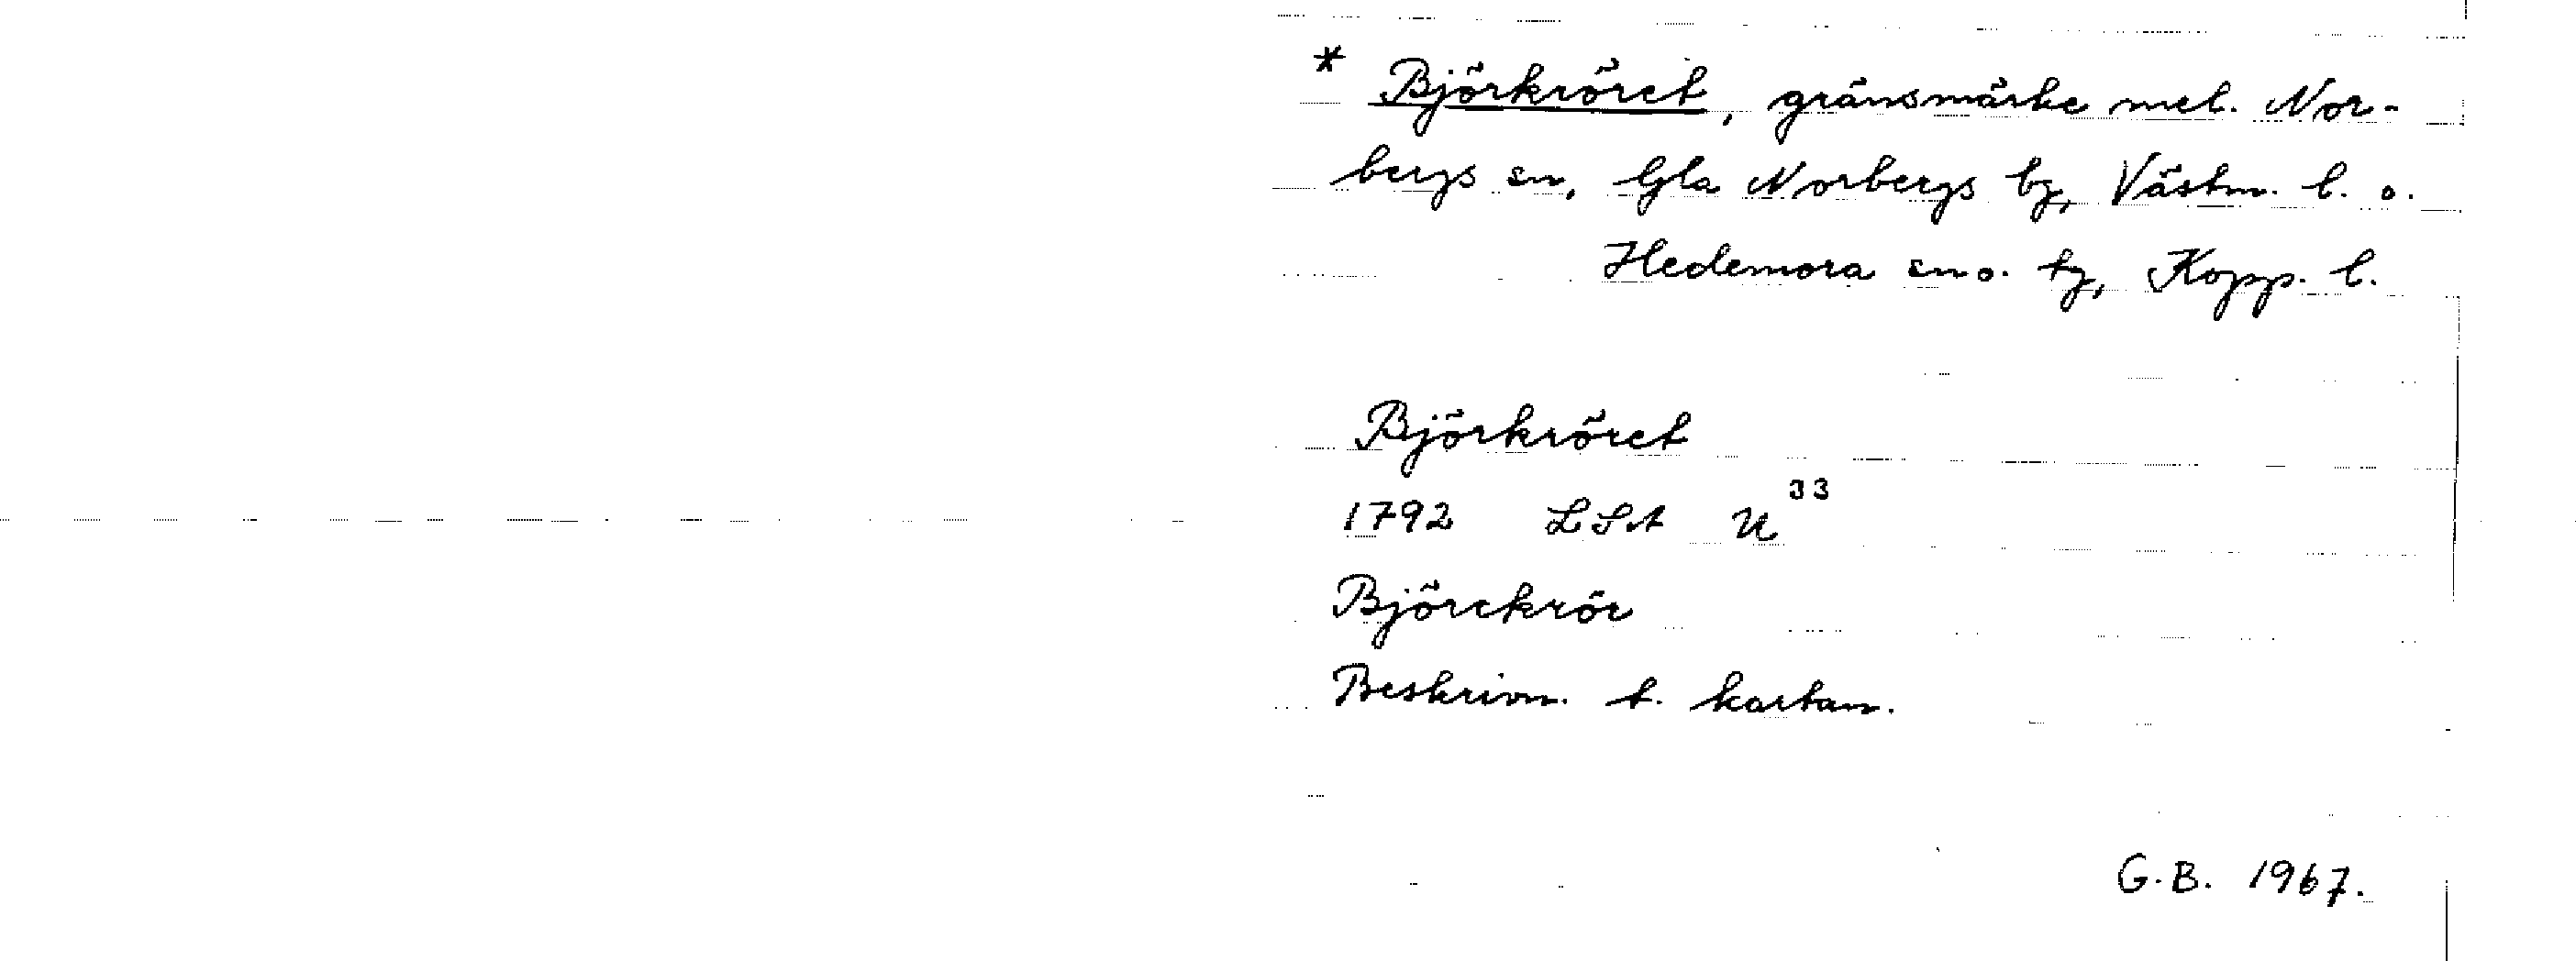 * Björkröret, gränsmärke mel. Nor-
bergs sn, Gla Norbergs bg, Västm. l. o.
Hedemora sn o. tg, Kopp. l.
Björkröret
1792 LSA U 33
Björckrör
Beskrivn. t. kartan.
G.B. 1967.